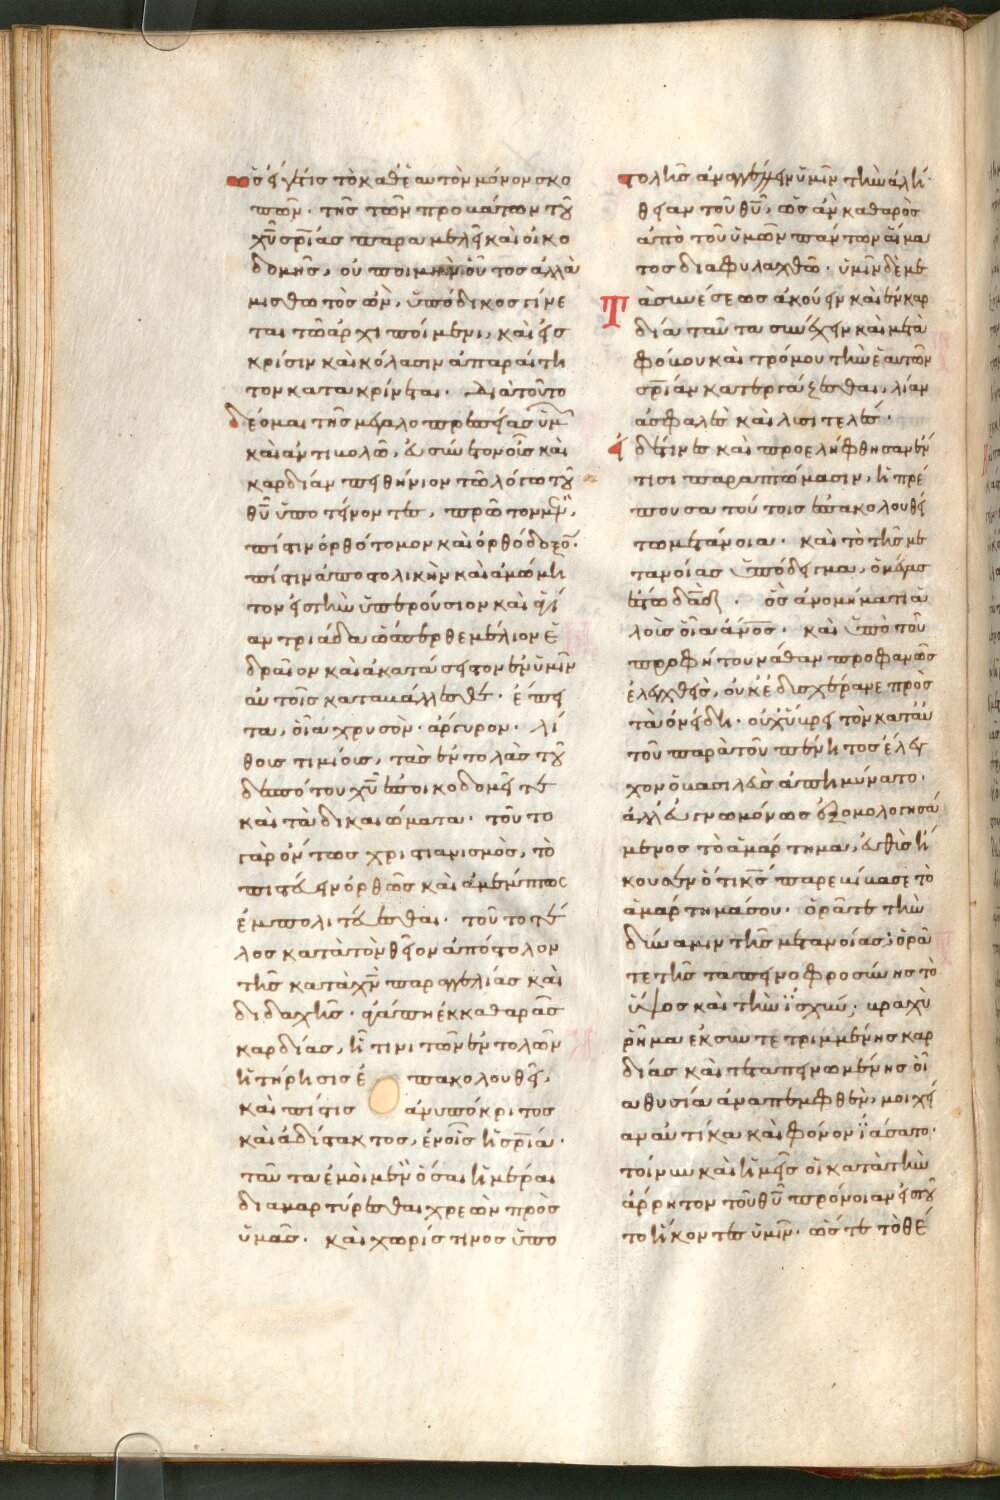 ὅς ἐγτὶς τὸ καθ' ἑαυτὸν μόνον σκο
πῶν· τῆς τῶν προβάτων τοῦ
χῦ σρίας παραμελεῖ καὶ οἰκο
δομῆς, οὐ ποιμὴν οὗτος ἀλλὰ
μισθωτὸς ὢν, ὑπόδικος γίνε
ται τῶ ἀρχιποίμενι, καὶ εἰς
κρίσιν καὶ κόλασιν ἀπαραίτη
τον κατακρίνεται· Διὰ τοῦτο
δέομαι τῆς μεγαλοπρεπείας ὑμ
καὶ ἀντιβολῶ, εὐσύνετον οὖς καὶ
καρδίαν πειθήνιον τῶ λόγω τοῦ
θῦ ὑποτείνοντες, πρῶτον μὲν,
πίστιν ὀρθότομον καὶ ὀρθόδοξον·
πίστιν ἀποστολικὴν καὶ ἀμώμη
τον εἰς τὴν ὑπερούσιον καὶ ἁγί
αν τριάδα ὥσπερ θεμέλιον ἑ
δραῖον καὶ ἀκατάσειστον ἐν ὑμῖν
αὐτοῖς καταβάλλεσθε· ἔπει
τα, οἷα χρυσὸν· ἄργυρον· λί
θοις τιμίοις, τὰς ἐντολὰς τοῦ
δεσπότου χῦ ἐποικοδομεῖτε
καὶ τὰ δικαιώματα· τοῦτο
γὰρ ὄντως χριστιανισμὸς, τὸ
πιστεύειν ὀρθῶς καὶ ἀμέμπτως
ἐμπολιτεύεσθαι· τοῦτο τέ
λος κατὰ τὸν θεῖον ἀπόστολον
τῆς κατὰ χν παραγγελίας καὶ
διδαχῆς· ἀγάπη ἐκ καθαρᾶς
καρδίας, ἧτινι τῶν ἐντολῶν
ἡ τήρησις ἐπακολουθεῖ,
καὶ πίστις ἀνυπόκριτος
καὶ ἀδίστακτος, ἐν οἷς ἡ σρία·
ταῦτα ἐμοὶ μὲν ὁσαι ἡμέραι
διαμαρτύρεσθαι χρεὼν πρὸς
ὑμᾶς· καὶ χωρίς τινος ὑπο
στολῆς ἀναγγέλλειν ὑμῖν τὴν ἀλή
θειαν τοῦ θῦ, ὡς ἂν καθαρὸς
ἀπὸ τοῦ ὑμῶν πάντων αἵμα
τος διαφυλαχθῶ· ὑμῖν δὲ με
Τὰ συνέσεως ἀκούειν καὶ ἐν καρ
δία ταῦτα συνέχειν καὶ μετὰ
φόβου καὶ τρόμου τὴν ἑαυτῶν
σρίαν κατεργάζεσθαι, λίαν
ἀσφαλὲς καὶ λυσιτελές·
εἰ δέ τινες καὶ προελήφθησαν ἔν
τισι παραπτώμασιν, ἡ πρέ
πουσα τούτοις ἐπακολουθεί
τω μετάνοια· καὶ τὸ τῆς με
τανοίας ὑπόδειγμα, ὁ μέγας
ἔστω δαδ· ὃς ἀνομήματι ἁ
λοὺς οἷα ἄνος· καὶ ὑπὸ τοῦ
προφήτου νάθαν προφανῶς
ἐλεγχθεὶς, οὐκ ἐδυσχέρανε πρὸς
τὰ ὀνείδη· οὐχ ὕβρει τὸν κατ' αὐ
τοῦ παρὰ τοῦ πένητος ἔλεγ
χον ὁ βασιλεὺς ἀπημύνατο·
ἀλλ' εὐγνωμόνως ἐξομολογησά
μενος τὸ ἁμάρτημα, εὐθὺς ἤ
κουσεν ὅτι κς παρεβίβασε τὸ
ἁμάρτημά σου· ὁρᾶτε τὴν
δύναμιν τῆς μετανοίας; ὁρᾶ
τε τῆς ταπεινοφροσύνης τὸ
ὕψος καὶ τὴν ἰσχύν; βραχὺ
ῥῆμα ἐκ συντετριμμένης καρ
δίας καὶ τεταπεινωμένης οἷ
α θυσία ἀναπεμφθὲν, μοιχεί
αν αὐτίκα καὶ φόνον ἰάσατο·
τοίνυν καὶ ἡμεῖς οἱ κατὰ τὴν
ἄρρητον τοῦ θῦ πρόνοιαν εἰς τοῦ
το ἥκοντες ὑμῖν· ὥστε τὸ θέ